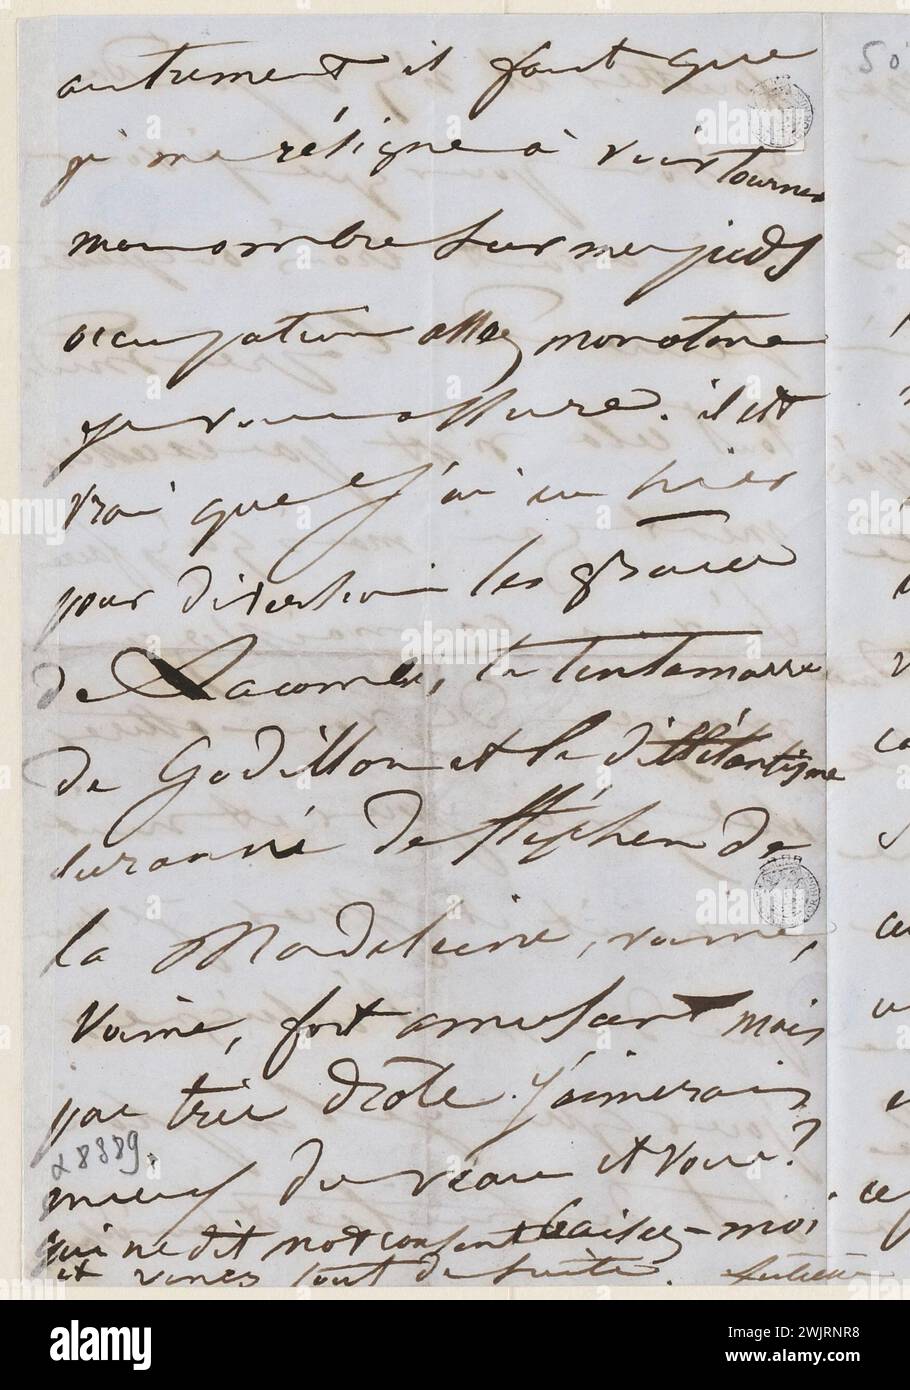 autrement il faut que
je me résigne à voir tourner
mon ombre sur mes pieds
occupation assez monotone
je vous assure. il est
vrai que j'ai eu hier
pour diversion les grâces
de Lacombe, le tintamarre
de Godillon et le dilettantisme
suranné de Stéphen de
la Madeleine,
fort amusant mais
pas très drôle. J'aimerais
mieux du veau et vous?
qui ne dit mot consent baisez-moi
et venez tout de suite. Juliette
28889.
50
alamy
Image ID: 2WJRNR8
www.alamy.com